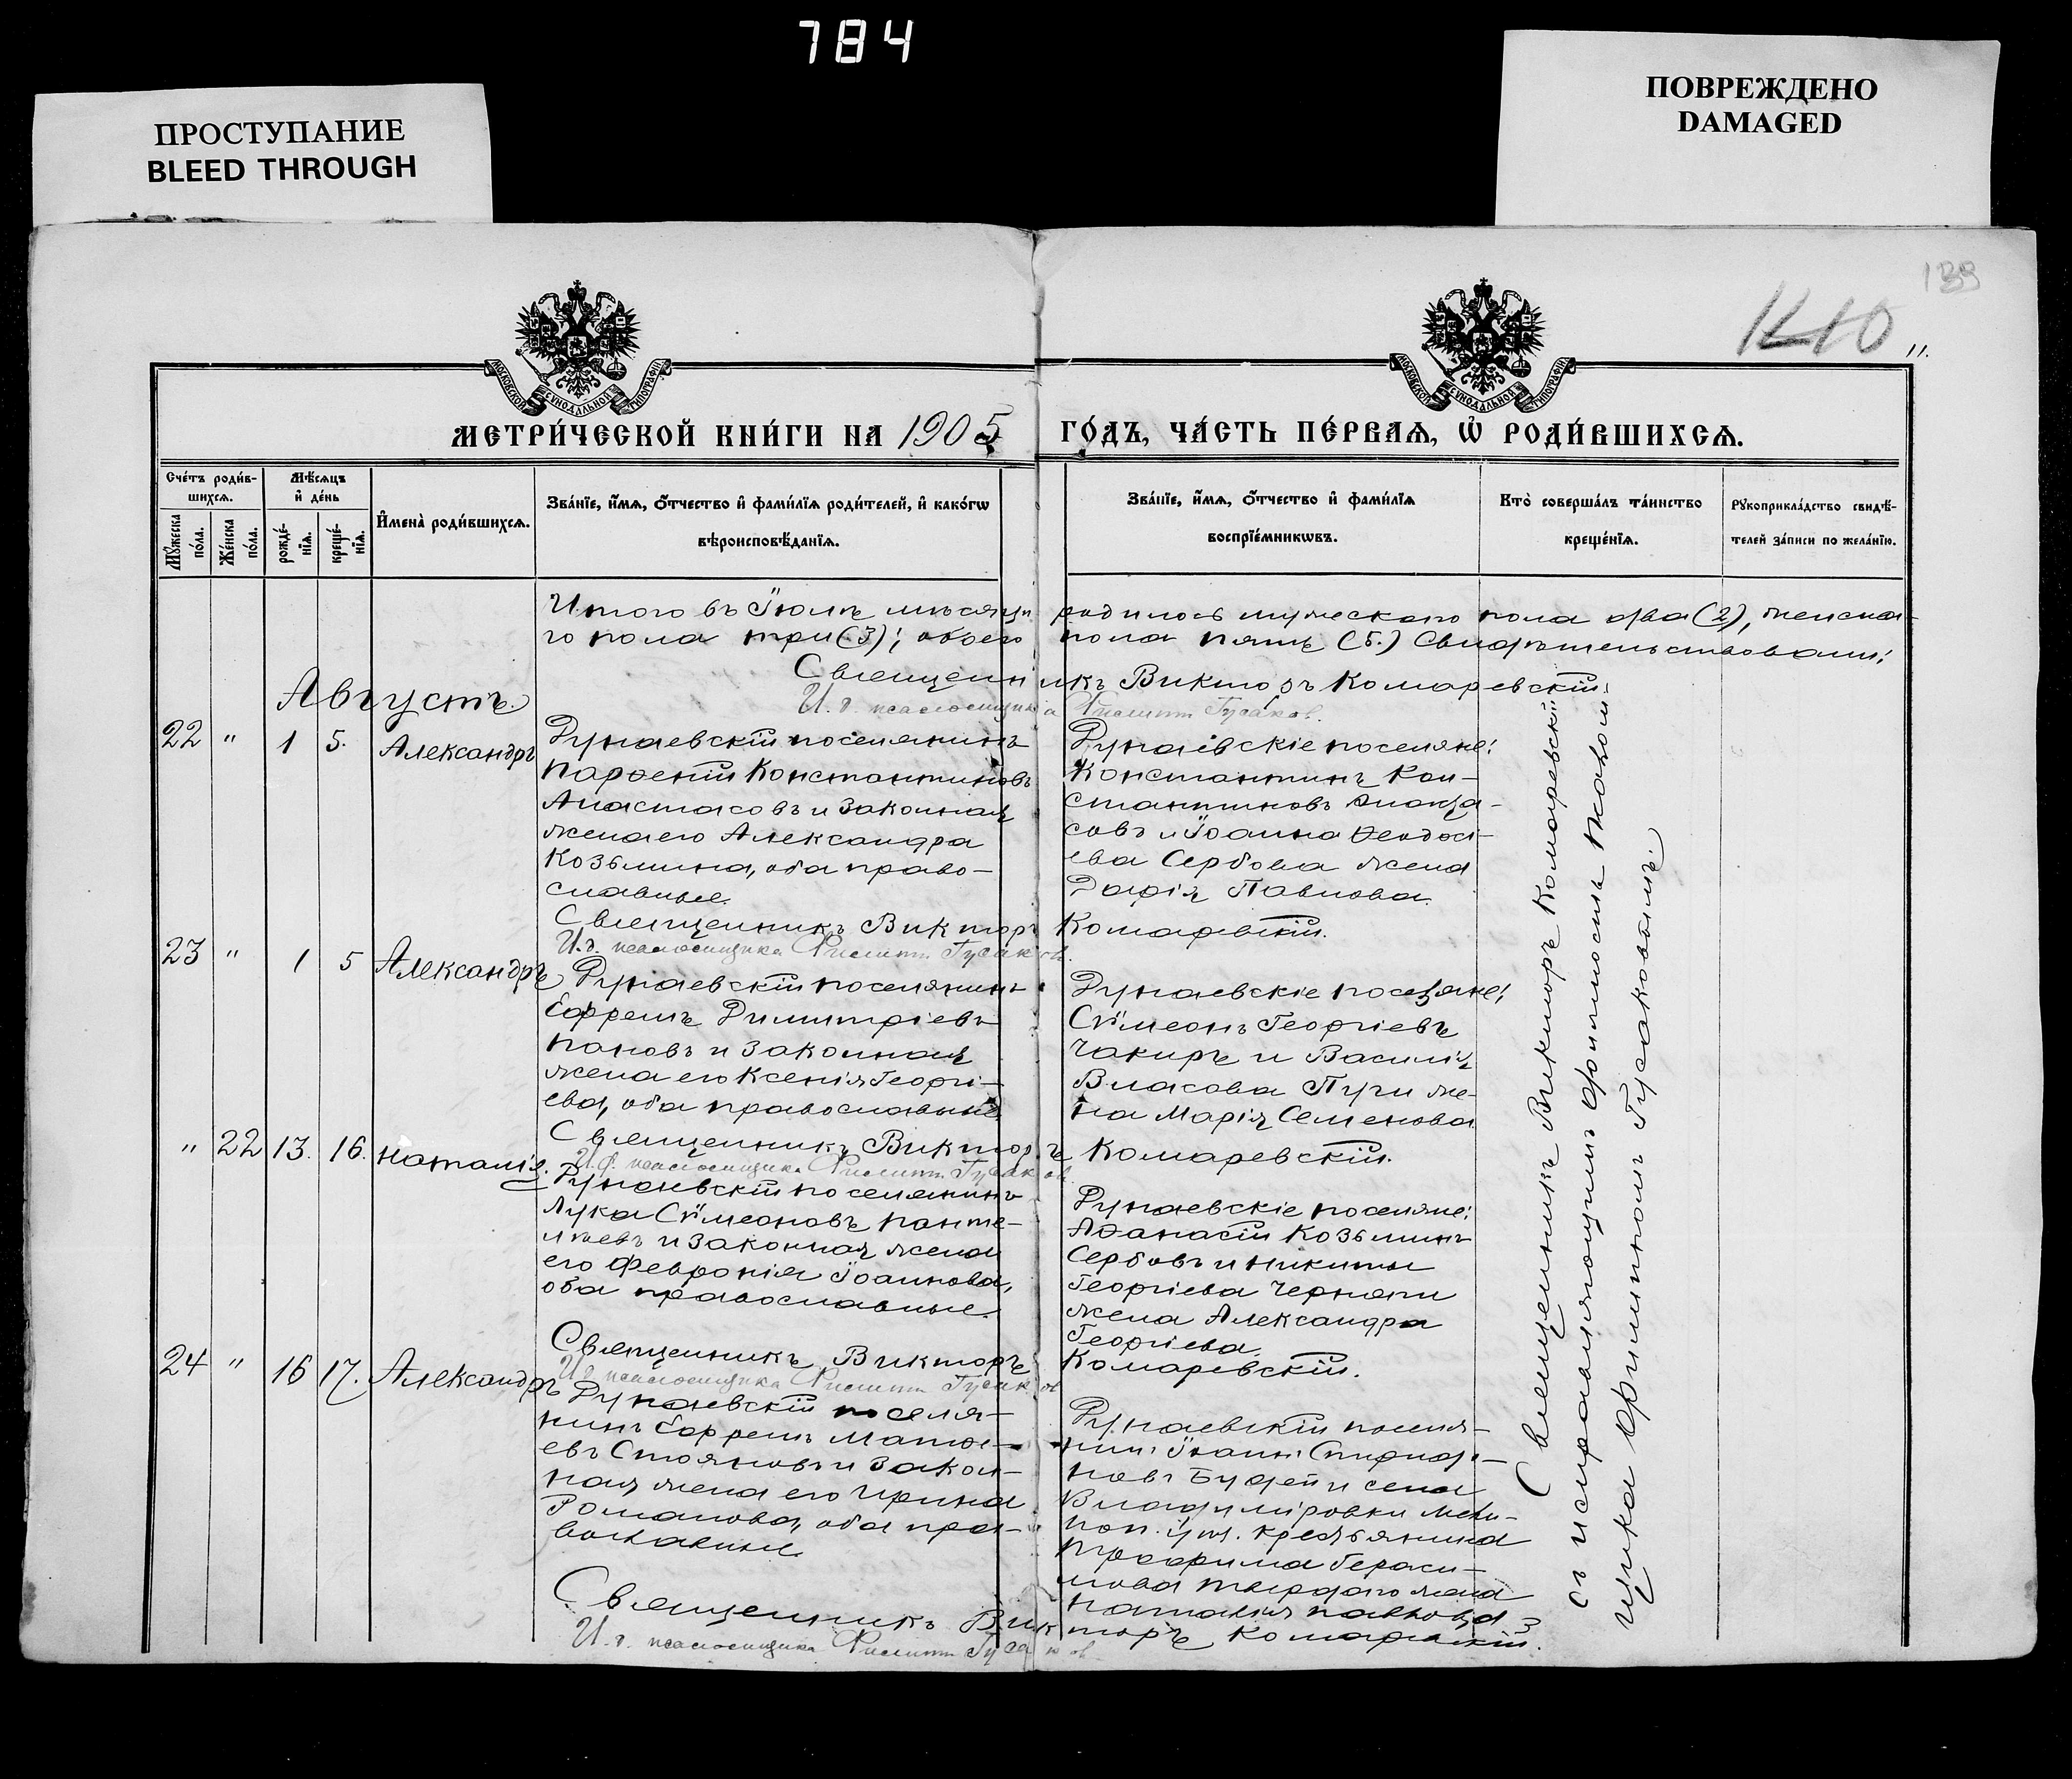 784
ПРОСТУПАНИЕ
BLEED THROUGH
ПОВРЕЖДЕНО
DAMAGED
139
МОСКОВСКОЙ СУНОДАЛЬНОЙ ТИПОГРАФІИ
МОСКОВСКОЙ СУНОДАЛЬНОЙ ТИПОГРАФІИ
МЕТРИ́ЧЕСКОЙ КНИ́ГИ НА 1905 ГО́ДЪ, ЧА́СТЬ ПЕ́РВАѦ, Ѡ҆ РОДИ́ВШИХСѦ.
Сче́тъ роди́в-
шихсѧ.
Мꙋ́жеска
по́ла.
Же́нска
по́ла.
Мѣ́сѧцъ
и҆ де́нь
рожде́-
нїѧ.
креще́-
нїѧ.
И҆мена̀ роди́вшихсѧ.
Зва́нїе, и҆́мѧ, о҆́тчество и҆ фами́лїѧ роди́телей, и҆ како́гѡ
вѣроисповѣ́данїѧ.
Зва́нїе, и҆́мѧ, о҆́тчество и҆ фами́лїѧ
воспрїе́мникѡвъ.
Кто̀ соверша́лъ та́инство
креще́нїѧ.
Рꙋкоприкла́дство свидѣ́-
телей за́писи по жела́нїю.
Итого въ Іюлѣ мѣсяцѣ родилось мужескаго пола два (2), женска-
го пола три (3); обоего пола пять (5.) Свидѣтельствовали:
Священникъ Викторъ Комаревскій.
И. д. псаломщика Филиппъ Гусаков.
Августъ.
22 " 1 5. Александръ
Дунаевскій поселянинъ
Парѳеній Константиновъ
Анастасовъ и законная
жена его Александра
Козьмина, оба право-
славные.
Дунаевскіе поселяне:
Константинъ Кон-
стантиновъ
совъ и Іоанна Ѳеодосі-
ева Сербова жена
Павлова.
Священникъ Викторъ Комаревскій.
И. д. псаломщика Филиппъ Гусаков.
23 " 1 5 Александръ
Дунаевскій поселянинъ
Ефремъ Димитріевъ
Пановъ и законная
жена его Ксенія Георгі-
ева, оба православные.
Дунаевскіе поселяне:
Сѵмеонъ Георгіевъ
Чакиръ и Василія
Власова Пучи же-
на Марія Семенова
Священникъ Викторъ Комаревскій.
И. д. псаломщика Филиппъ Гусаков.
" 22 13. 16. Наталія.
Дунаевскій поселянинъ
Лука Сѵмеоновъ Панте-
лѣевъ и законная жена
его Февронія Іоаннова,
оба православные.
Дунаевскіе поселяне:
Аѳанасій Козьминъ
Сербовъ и Никиты
Георгіева Черняги
жена Александра
Георгіева.
Священникъ Викторъ Комаревскій.
И. д. псаломщика Филиппъ Гусаков
24 " 16 17. Александръ
Дунаевскій поселя-
нинъ Ефремъ Матѳе-
евъ Стояновъ и закон-
ная жена его Ирина
Романова, оба пра-
вославные.
Дунаевскій поселя-
нинъ Іоаннъ Спиридо-
новъ и села
Владиміровки Мели-
топ. уѣз. крестьянина
Трофима Гераси-
мова Твердаго жена
Наталія Павлова
Священникъ Викторъ Комаревскій.
И. д. псаломщика Филиппъ Гусаков
Священникъ Викторъ Комаревскій
съ исправляющимъ должность псалом-
щика Филиппомъ Гусаковымъ.